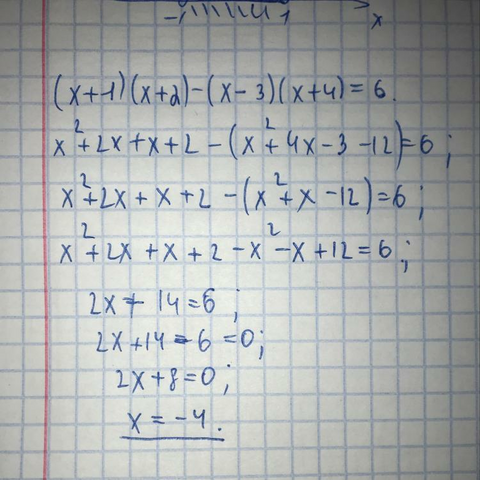 -1 1 x
(x+1)(x+2)-(x-3)(x+4)=6.
x²+2x+x+2-(x²+4x-3-12)=6;
x²+2x+x+2-(x²+x-12)=6;
x²+2x+x+2-x²-x+12=6;
2x+14=6;
2x+14-6=0;
2x+8=0;
x=-4.